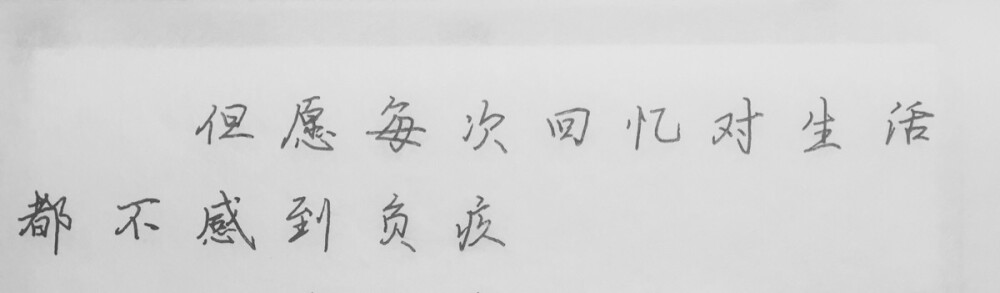 但愿每次回忆对生活
都不感到负疚